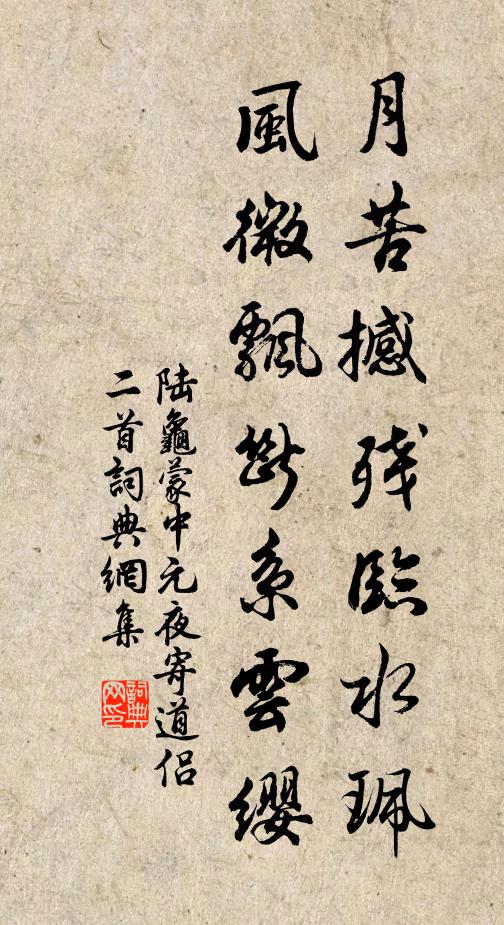 月苦撼残臨水珮
風微飄断系雲纓
陆龜蒙中元夜寄道侣
二首詞典網集
詞典网印